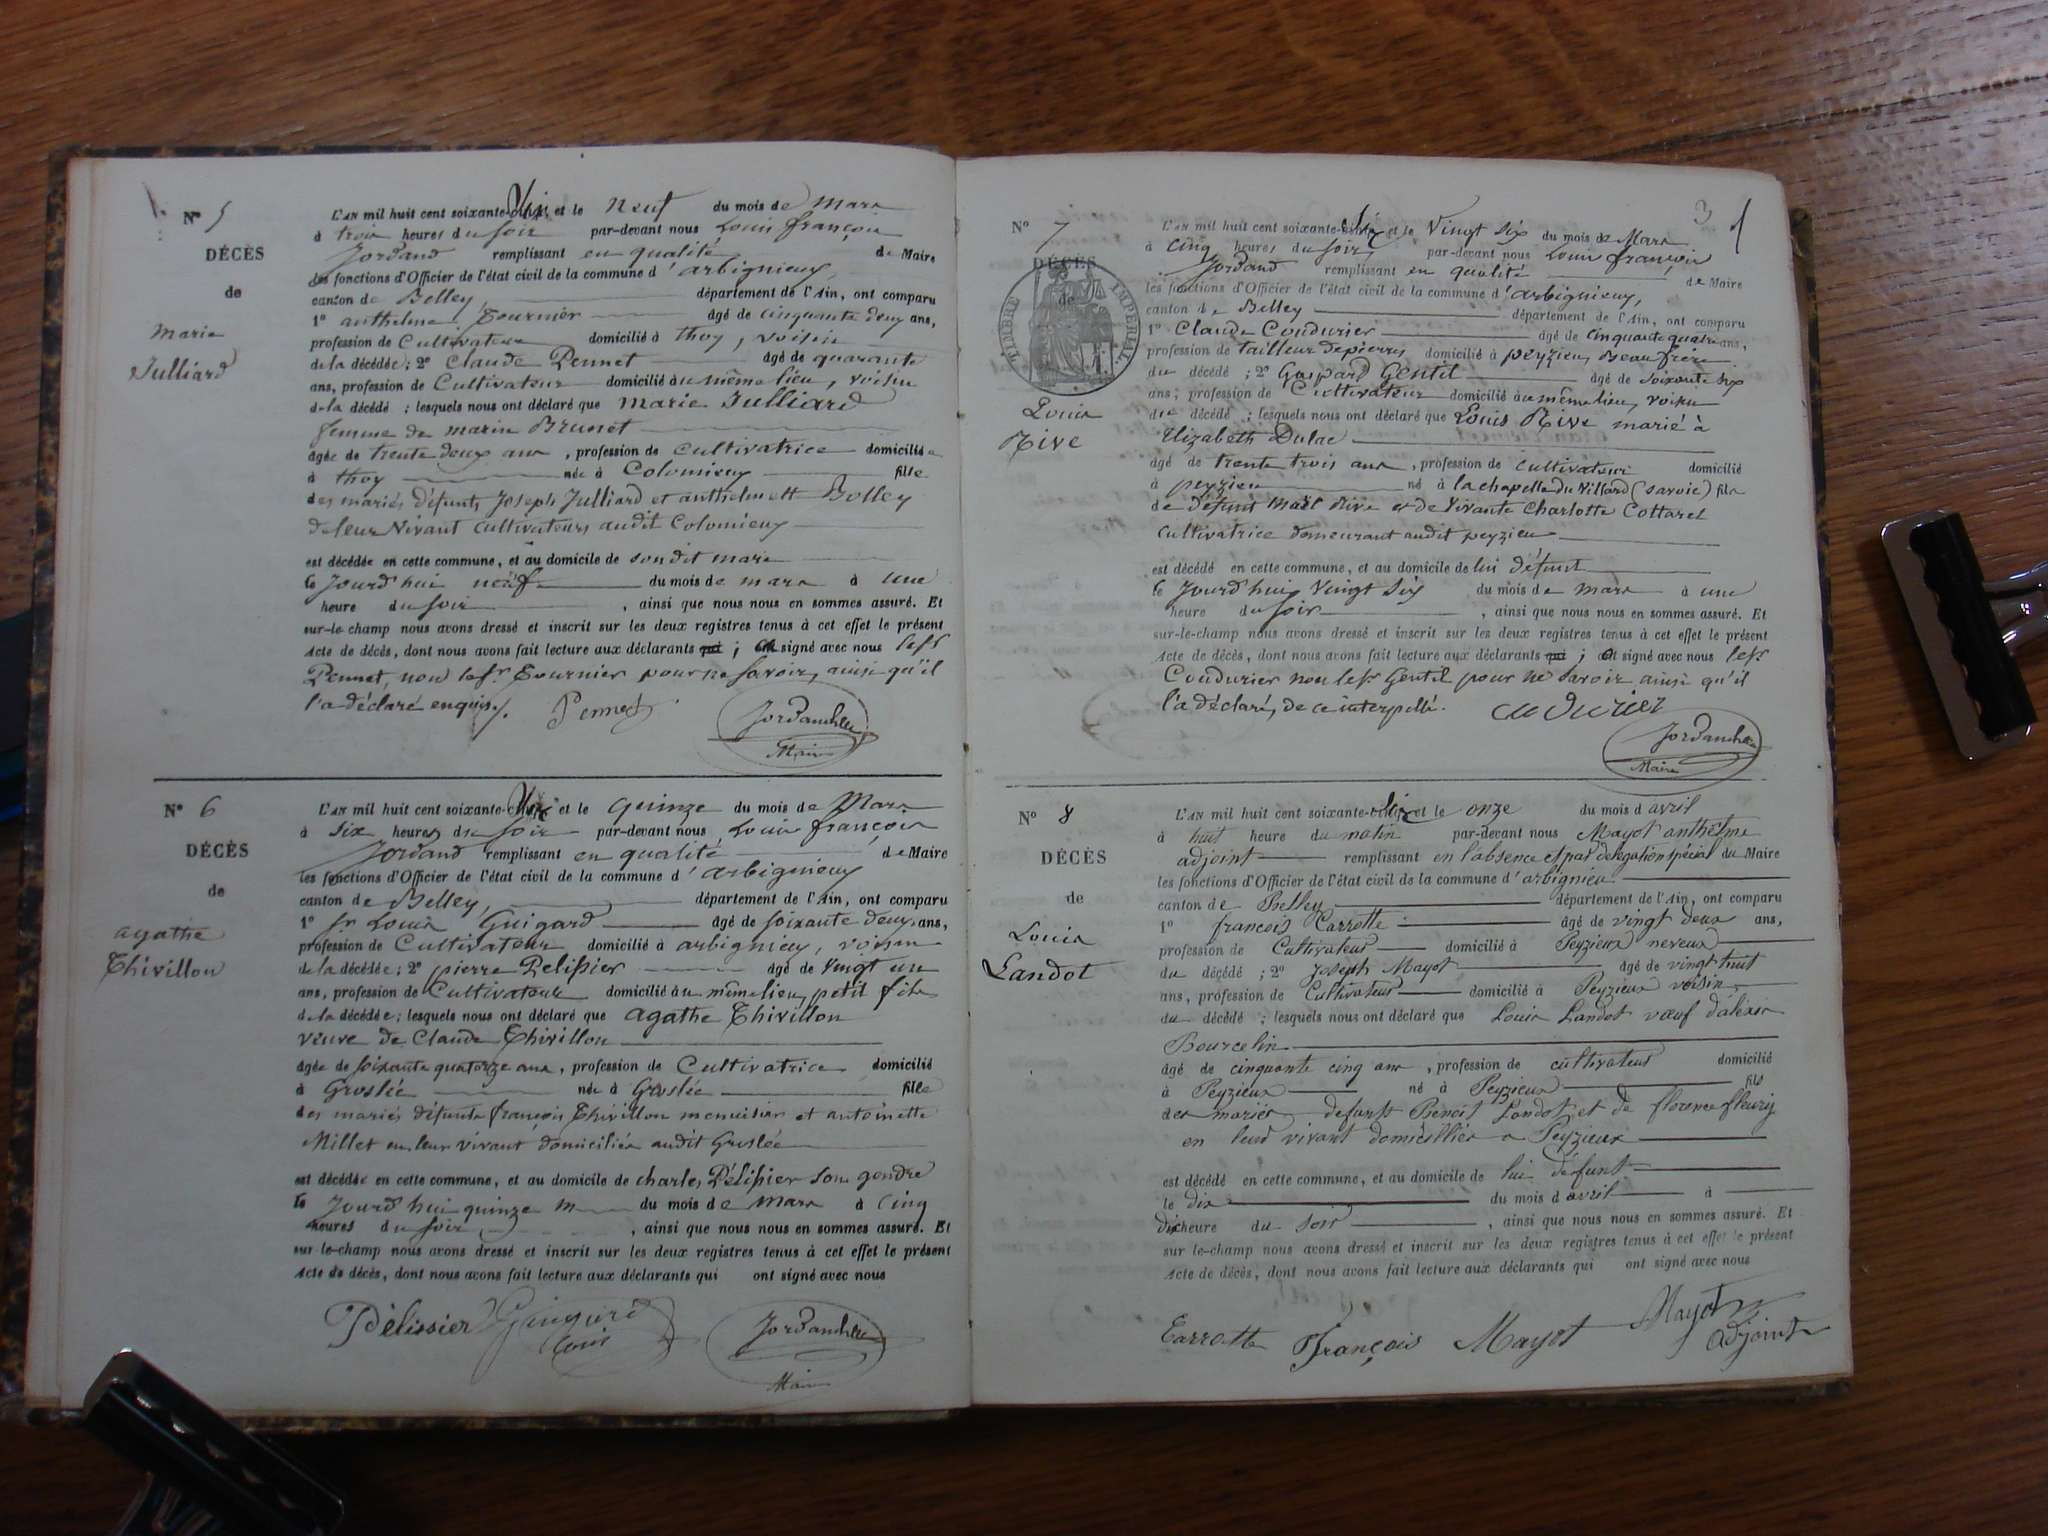 N° 5
DÉCÈS
de
Marie
Julliard
L'AN mil huit cent soixante-six et le neuf du mois de Mars
à trois heures du soir par-devant nous Louis françois
Jordand remplissant en qualité de Maire
les fonctions d'Officier de l'état civil de la commune d'arbignieux
canton de Belley, département de l'Ain, ont comparu
1° anthelme Tournier âgé de cinquante deux ans,
profession de Cultivateur domicilié à thoy, voisin
de la décédée; 2° Claude Pennet âgé de quarante
ans, profession de Cultivateur domicilié au même lieu, voisin
de la décédé ; lesquels nous ont déclaré que Marie Julliard
femme de marin Brunet
âgée de trente deux ans, profession de Cultivatrice domiciliée
à thoy née à Colomieux fille
des mariés défunts Joseph Julliard et anthelmette Bolley
de leur Vivant Cultivateurs audit Colomieux
est décédée en cette commune, et au domicile de son dit mari
le Jourd'hui neuf du mois de mars à une
heure du soir, ainsi que nous nous en sommes assuré. Et
sur-le-champ nous avons dressé et inscrit sur les deux registres tenus à cet effet le présent
Acte de décès, dont nous avons fait lecture aux déclarants qui ; ont signé avec nous le sr
Pennet, non le sr Tournier pour ne savoir, ainsi qu'il
l'a déclaré enquis./. Pennet Jordand
Maire
N° 6
DÉCÈS
de
agathe
Thivillon
L'AN mil huit cent soixante-six et le quinze du mois de Mars
à six heures du soir par-devant nous Louis françois
Jordand remplissant en qualité de Maire
les fonctions d'Officier de l'état civil de la commune d'arbignieux
canton de Belley, département de l'Ain, ont comparu
1° sr Louis Guigard âgé de soixante deux ans,
profession de Cultivateur domicilié à arbignieux, voisin
de la décédée; 2° pierre Pelissier âgé de Vingt un
ans, profession de Cultivateur domicilié au même lieu, petit fils
de la décédée; lesquels nous ont déclaré que agathe Thivillon
veuve de Claude Thivillon
âgée de soixante quatorze ans, profession de Cultivatrice domicilié
à Groslée née à Groslée fille
des mariés défunts françois Thivillon menuisier et antoinette
Millet en leur vivant domiciliés audit Groslée
est décédée en cette commune, et au domicile de charles Pélissier son gendre
le Jourd'hui quinze du mois de mars à cinq
heures du soir, ainsi que nous nous en sommes assuré. Et
sur-le-champ nous avons dressé et inscrit sur les deux registres tenus à cet effet le présent
Acte de décès, dont nous avons fait lecture aux déclarants qui ont signé avec nous
Pélissier Guigard Louis Jordand
Maire
3 1
N° 7
DÉCÈS
de
TIMBRE IMPÉRIAL
Louis
Rive
L'AN mil huit cent soixante-six et le Vingt six du mois de Mars
à cinq heures du soir, par-devant nous Louis françois
Jordand remplissant en qualité de Maire
les fonctions d'Officier de l'état civil de la commune d'arbignieux,
canton de Belley département de l'Ain, ont comparu
1° Claude Coudurier âgé de cinquante quatre ans,
profession de tailleur de pierres domicilié à peyzieu, Beau frère
du décédé ; 2° Gaspard Gentil âgé de soixante six
ans, profession de Cultivateur domicilié au même lieu, voisin
du décédé ; lesquels nous ont déclaré que Louis Rive marié à
Elizabeth Dulac
âgé de trente trois ans, profession de cultivateur domicilié
à peyzieu né à la chapelle du Villard (savoie) fils
de défunt Rive et de Vivante Charlotte Cottarel
cultivatrice demeurant audit peyzieu
est décédé en cette commune, et au domicile de lui défunt
le Jourd'hui Vingt six du mois de mars à une
heure du soir, ainsi que nous nous en sommes assuré. Et
sur-le-champ nous avons dressé et inscrit sur les deux registres tenus à cet effet le présent
Acte de décès, dont nous avons fait lecture aux déclarants qui ; ont signé avec nous le sr
Coudurier non le sr Gentil pour ne savoir ainsi qu'il
l'a déclaré, de ce interpellé.
Jordand
Maire
N° 8
DÉCÈS
de
Louis
Landot
L'AN mil huit cent soixante-six et le onze du mois d avril
à huit heure du matin par-devant nous Mayot anthelme
adjoint remplissant en l'absence et par delegation spécial du Maire
les fonctions d'Officier de l'état civil de la commune d'arbignieu
canton de Belley département de l'Ain, ont comparu
1° francois Carrotte âgé de vingt deux ans,
profession de Cultivateur domicilié à Peyzieux neveux
du décédé ; 2° Joseph Mayot âgé de vingt huit
ans, profession de Cultivateur domicilié à Peyzieux voisin
du décédé ; lesquels nous ont déclaré que Louis Landot vœuf d'alexis
Bourcelin
âgé de cinquante cinq ans, profession de cultivateur domicilié
à Peyzieux né à Peyzieux fils
des mariés defunts Benoit Landot et de florence fleury
en leur vivant domicilliés a Peyzieux
est décédé en cette commune, et au domicile de lui défunt
le dix du mois d avril à
dix heure du soir, ainsi que nous nous en sommes assuré. Et
sur le-champ nous avons dressé et inscrit sur les deux registres tenus à cet effet le présent
Acte de décès, dont nous avons fait lecture aux déclarants qui ont signé avec nous
Carrotte François Mayot Mayot
adjoint